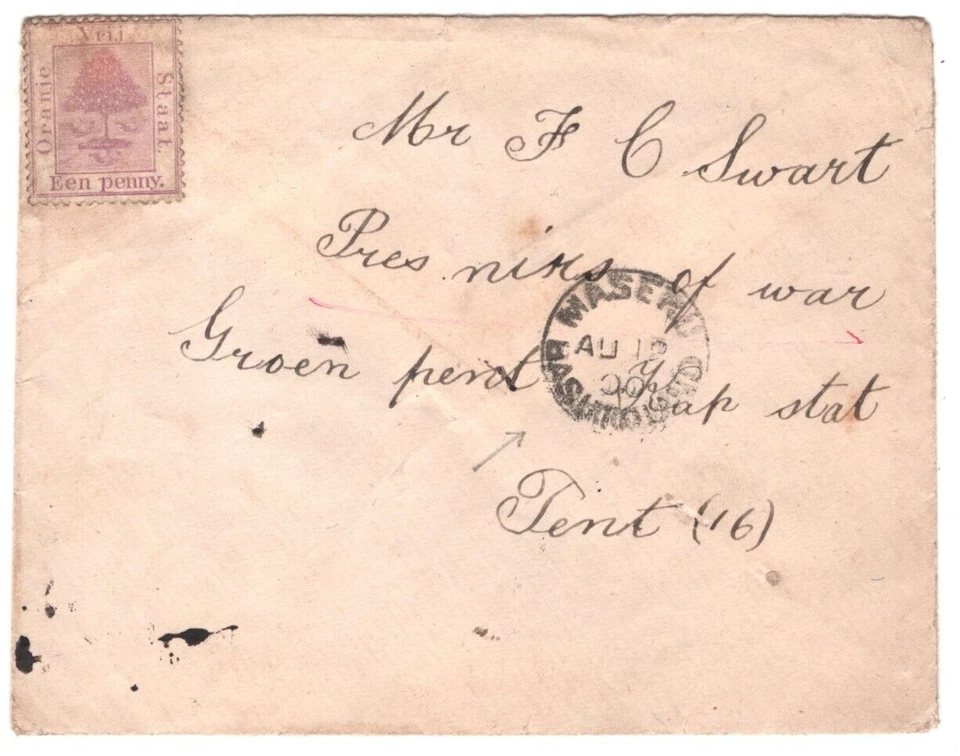 Vrij
Oranie
Staat
Een penny.
Mr F C Swart
Pres nirs of war
Groen pent y Cap stat
Tent (16)
MASERU
AU 1
00
BASUTOLAND